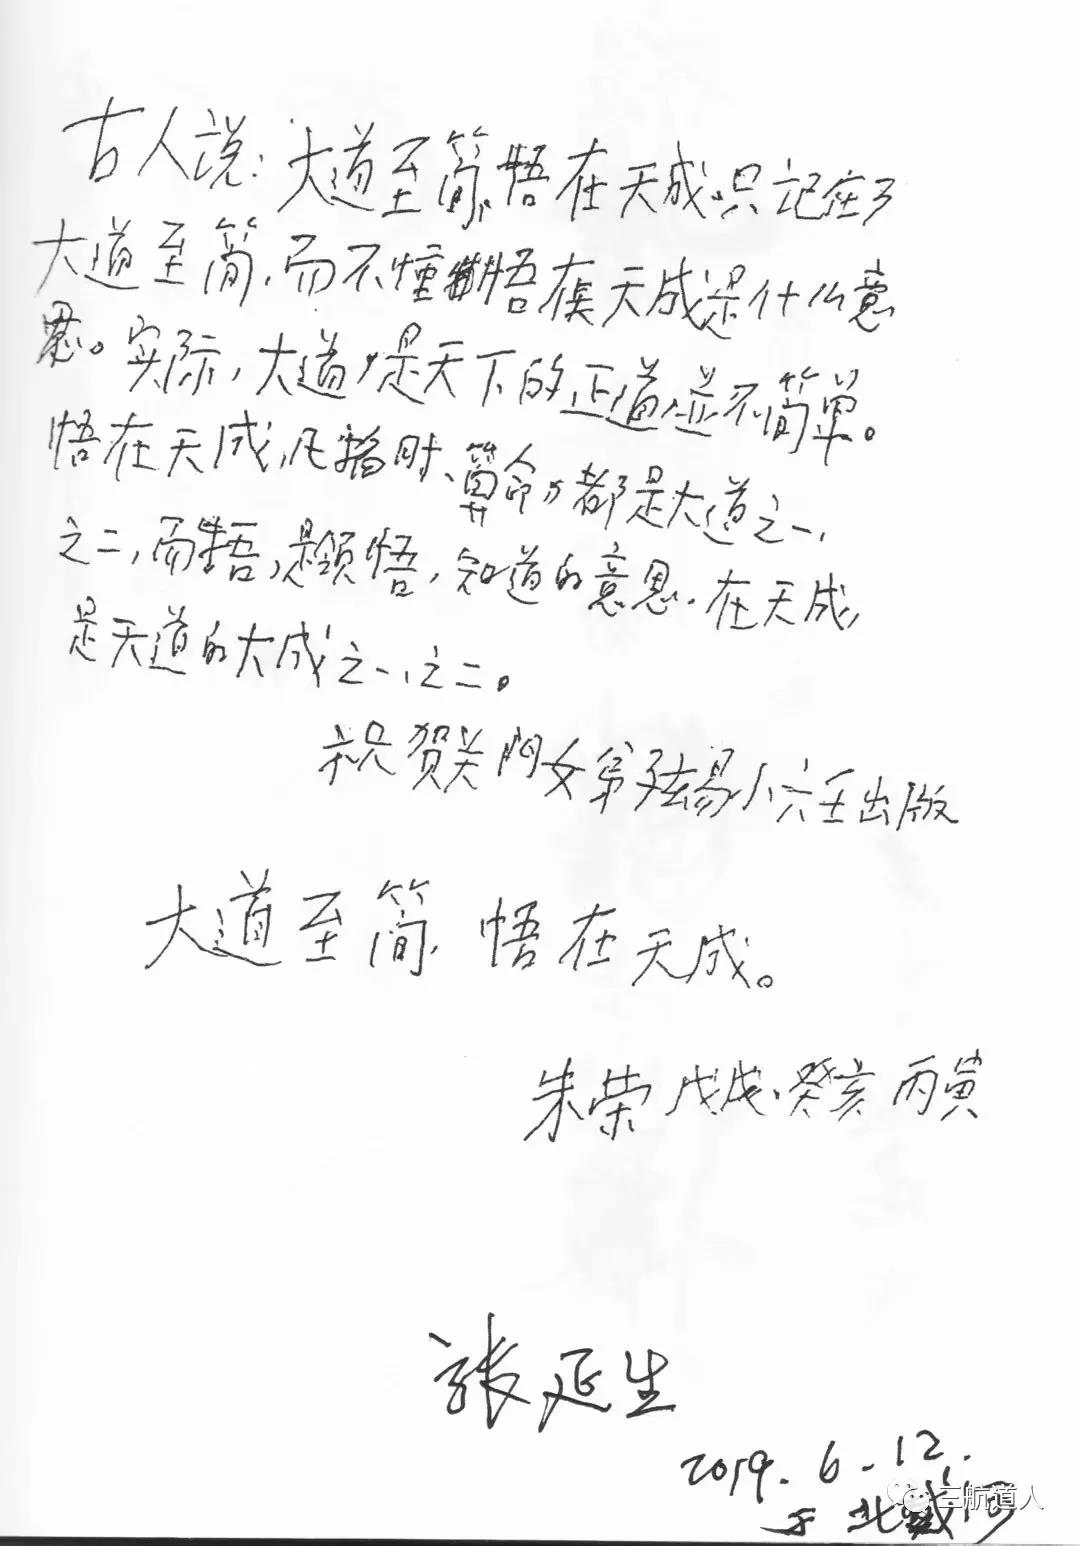 古人说：大道至简，悟在天成。只记在了
大道至简，而不懂悟在天成是什么意
思。实际，大道，是天下的正道，并不简单。
悟在天成，凡 时、算命，都是大道之一、
之二，而悟，是领悟，知道的意思。在天成，
是天道的大成之一、之二。
祝贺关门女弟子弦易小六壬出版
大道至简，悟在天成。
朱荣 戊戌、癸亥 丙寅
張延生
2019.6.12.
于北戴河
三航道人